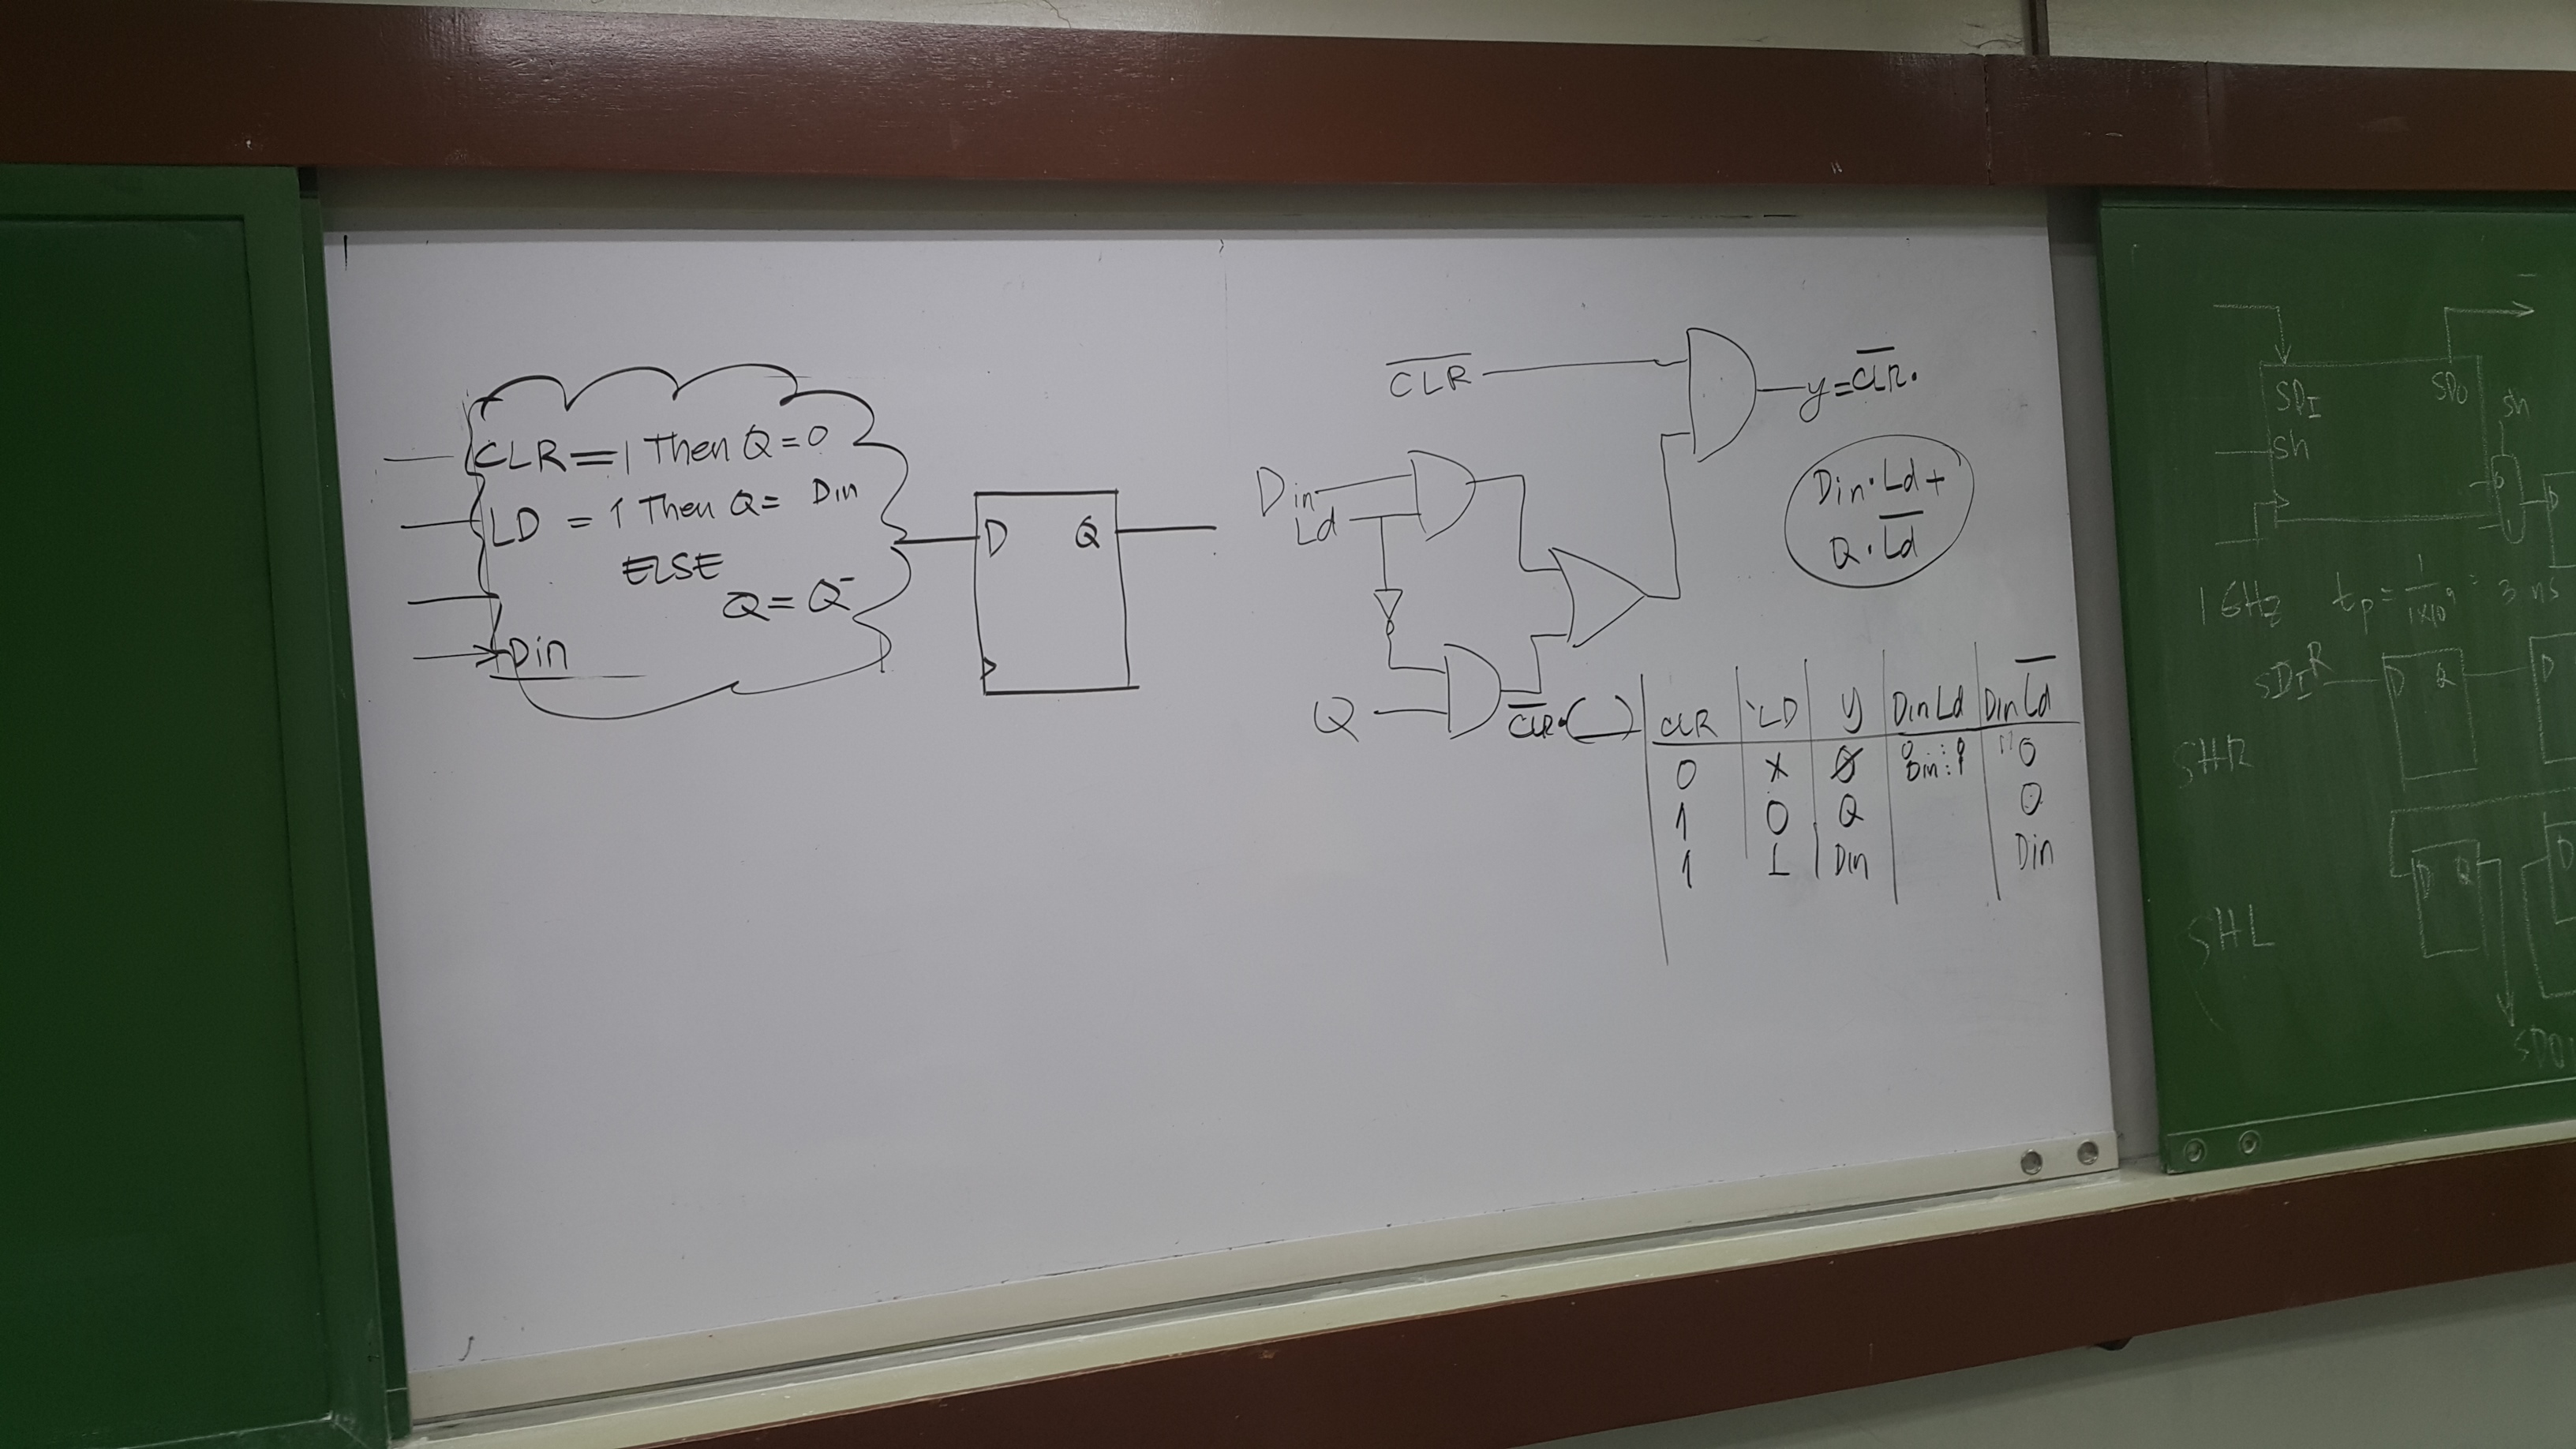 CLR=1 Then Q=0
LD = 1 Then Q= Din
ELSE
Q=Q⁻
Din
D Q
C̅L̅R̅
y=C̅L̅R̅·
Din·Ld+
Q·L̅d̅
Din
Ld
Q
C̅L̅R̅·( )
CLR LD y DinLd DinL̅d̅
0 X 0
1 0 Q 0
1 1 Din Din
SDI SDO
sh
sh
D
1 GHz tp= 1/1x10⁹ = 3 ns
SDI R D Q D
SHR
D Q D
SHL